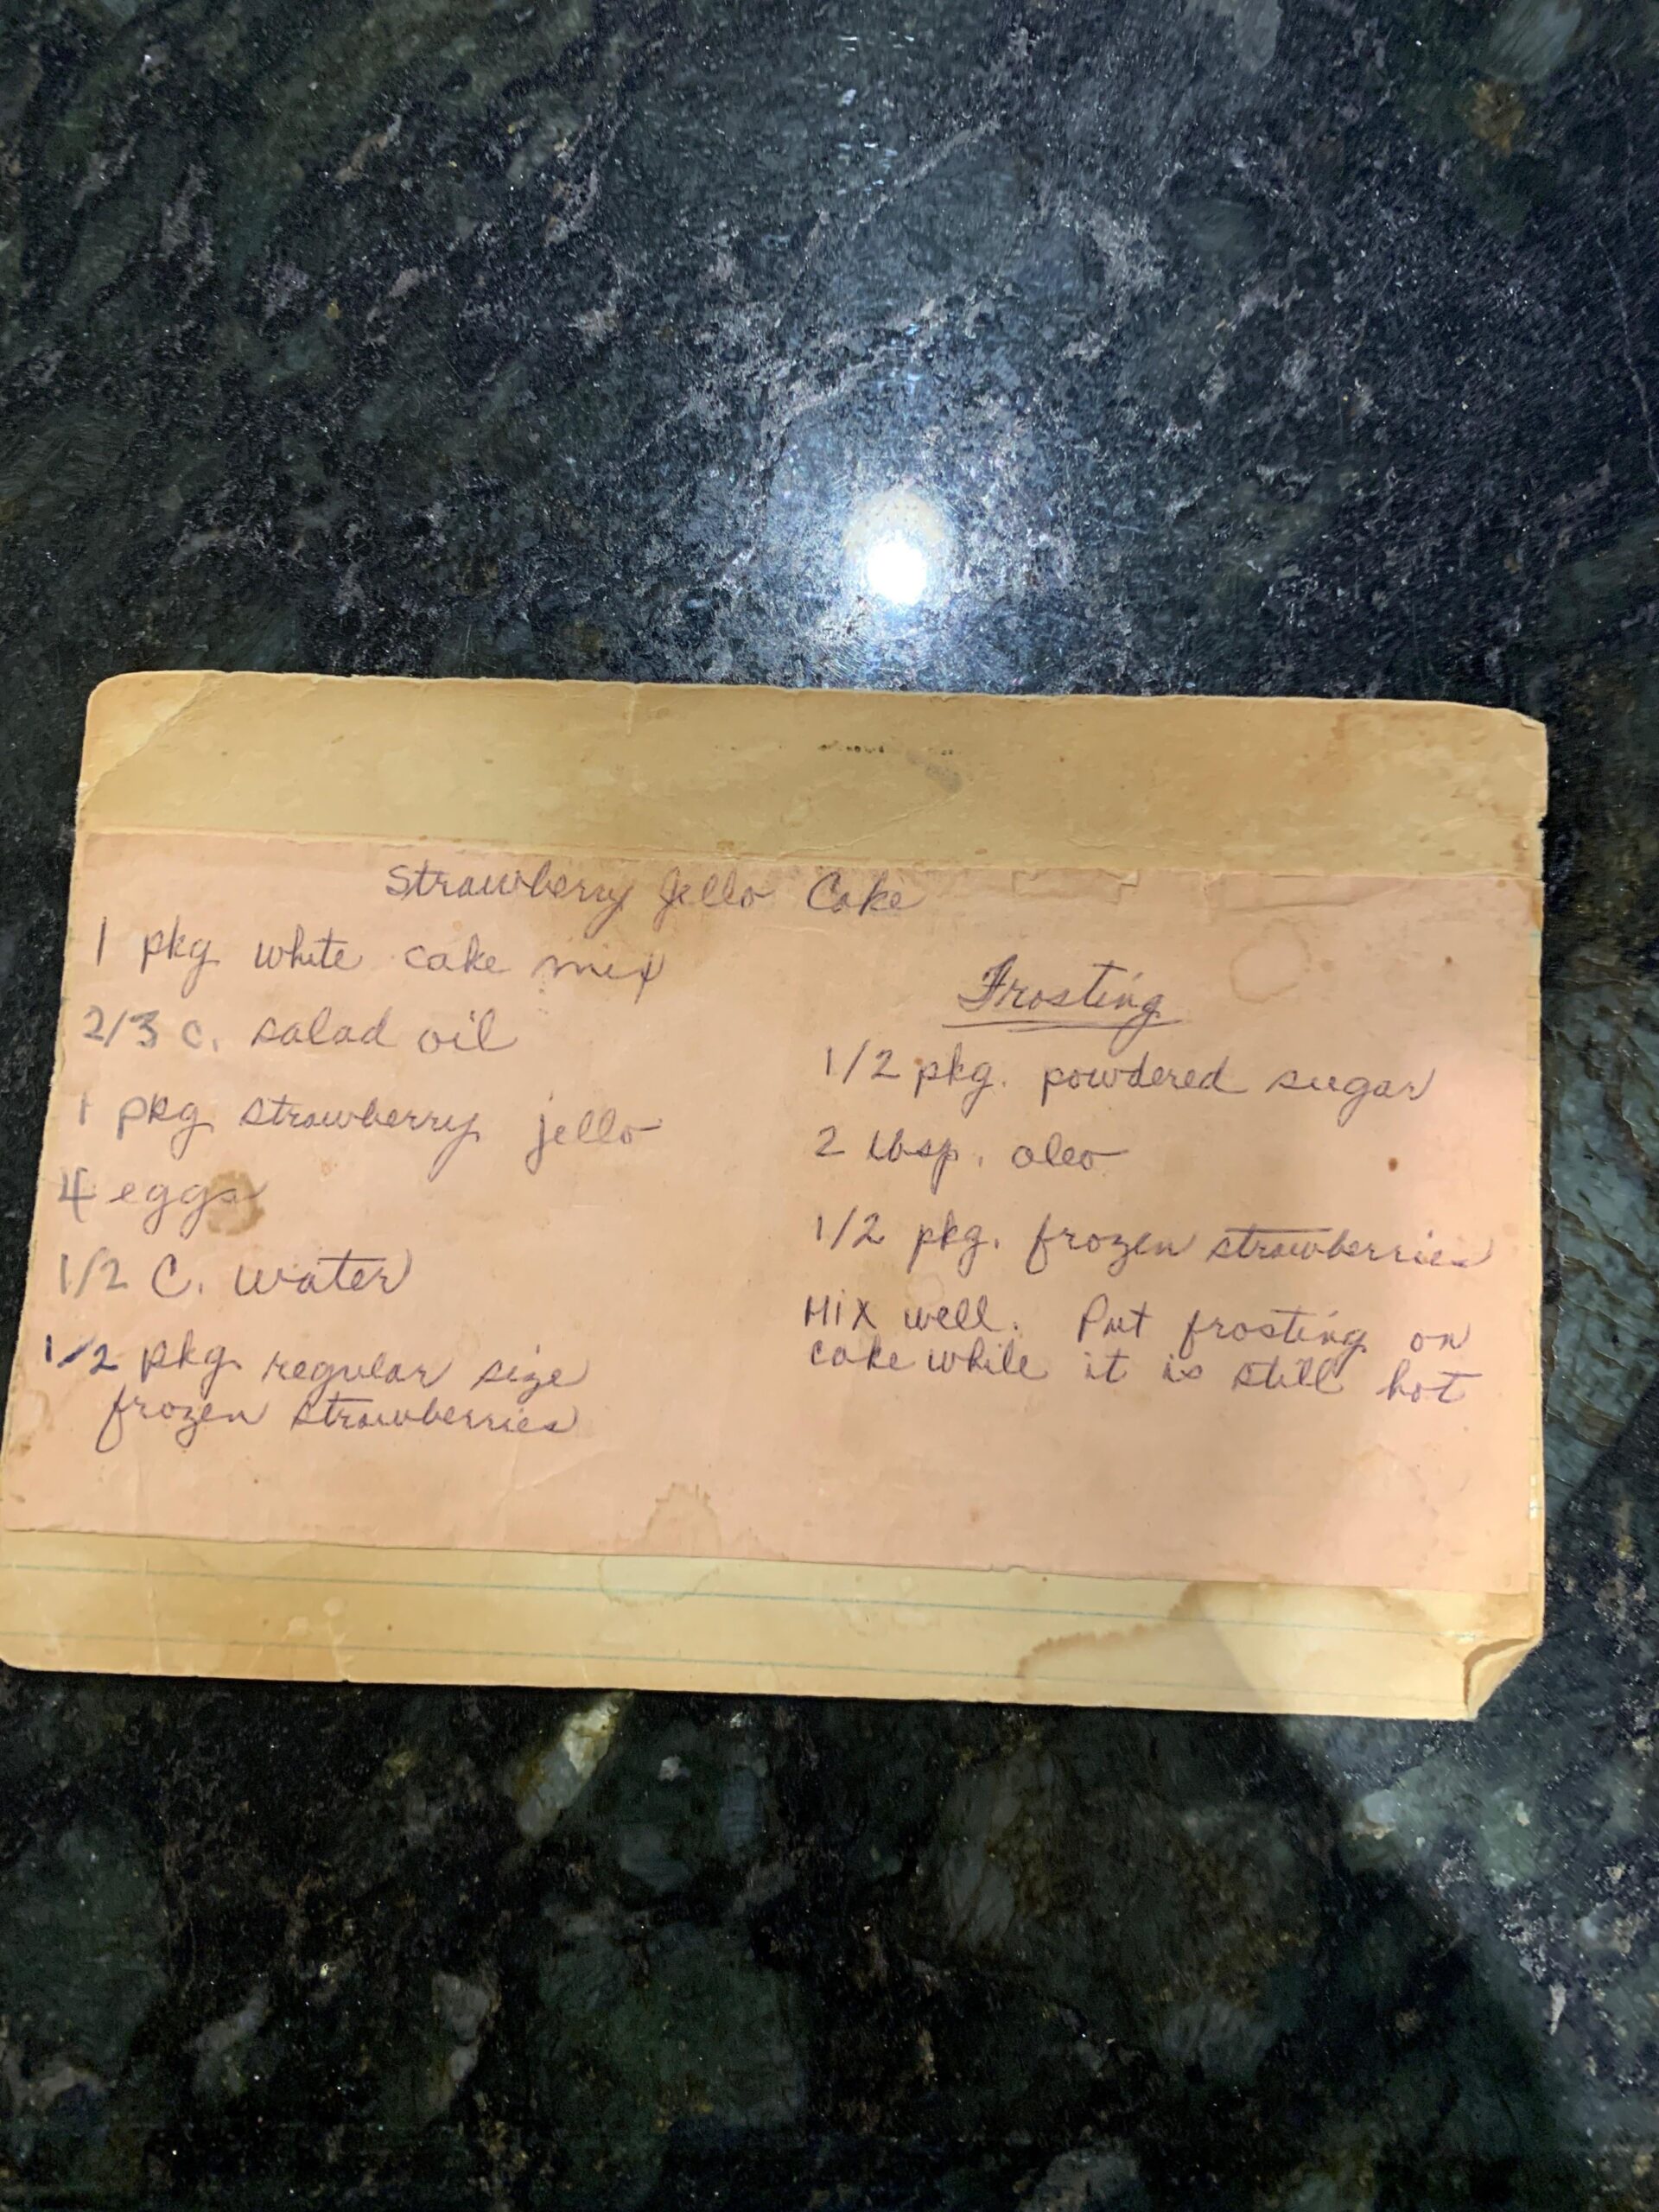 Strawberry Jello Cake
1 pkg white cake mix
2/3 c. salad oil
1 pkg strawberry jello
4 eggs
1/2 C. water
1/2 pkg. regular size
frozen strawberries
Frosting
1/2 pkg. powdered sugar
2 tbsp. oleo
1/2 pkg. frozen strawberries
Mix well. Put frosting on
cake while it is still hot